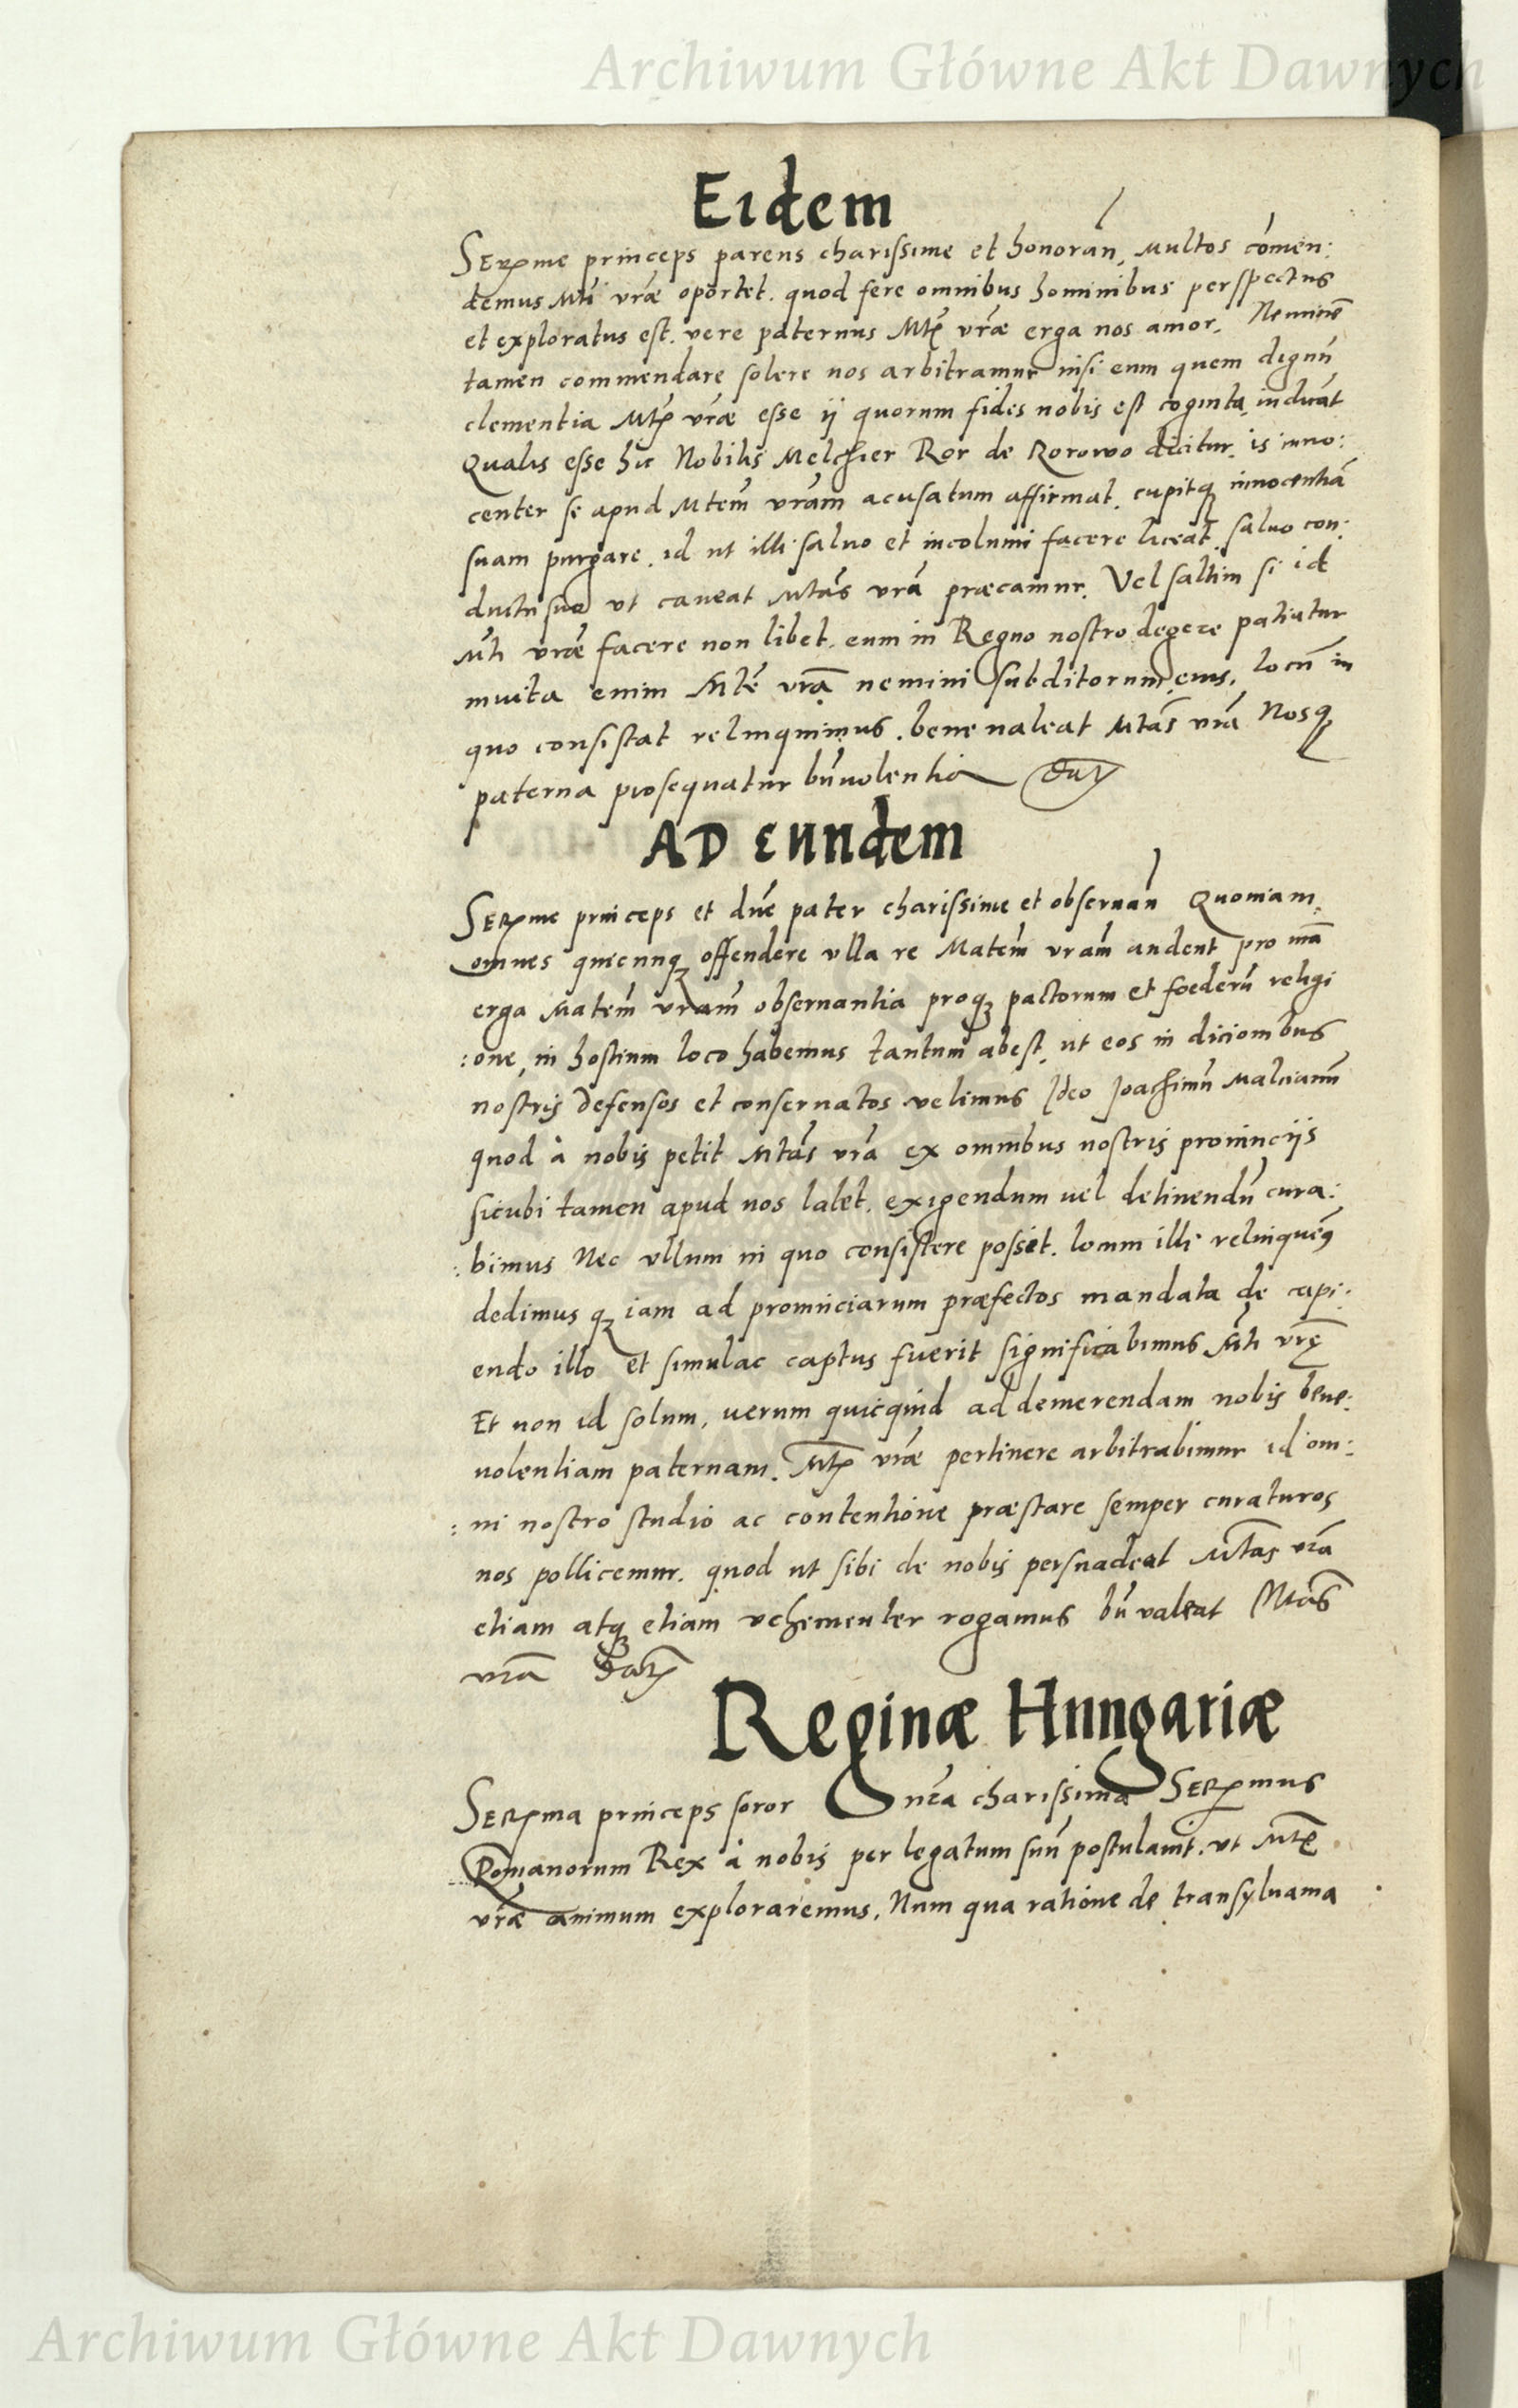 Archiwum Główne Akt Dawnych
Eidem
Serꝫme princeps parens charissime et honorañ, multos com̄en:
demus Mti vræ oportet. quod fere omnibus hominibus perspectus
et exploratus est. vere paternus Mtꝭ vrǣ erga nos amor. Neminē
tamen commendare solere nos arbitramur nisi eum quem dignū
clementia Mtꝭ vrǣ esse ij quorum fides nobis est coginta inducāt
Qualis esse hic Nobilis Melchier Ror de Rorowo dicitur. is inno:
center se apud Mtem̄ vram̄ acusatum affirmat. cupitqꝫ innocentiā
suam purgare. id ut illi saluo et incolumi facere liceat. saluo con:
ductu suo vt caveat Mtās vrā præcamur. Vel saltim si id
Mti vrǣ facere non libet. eum in Regno nostro degere patiatur
muita enim Mtē vrā nemini subditorum eius. locū in
quo consistat relinquimus. bene ualeat Mtās vrā Nosqꝫ
paterna prosequatur bn̄uolentia Datꝭ
AD eundem
Serꝫme princeps et dn̄e pater charissime et obseruan̄ Quoniam
omnes quicunqꝫ offendere vlla re Matem̄ vram̄ audent pro nrā
erga Matem̄ vram̄ obseruantia proqꝫ pactorum et foederū religi
:one, in hostium loco habemus tantum abest, ut eos in dicionibus
nostris defensos et conseruatos velimus Ideo Joachimū Malcianū
quod à nobis petit Mtās vrā ex omnibus nostris prouincijs
sicubi tamen apud nos latet. exigendum uel detinendū cura:
:bimus Nec vllum in quo consistere posset. locum illi relinquemꝰ
dedimus qꝫ iam ad prouinciarum præfectos mandata de capi:
endo illo et simulac captus fuerit significabimus Mti vrę
Et non id solum, uerum quicquid ad demerendam nobis bene:
uolentiam paternam. Mtꝭ vrǣ pertinere arbitrabimur id om:
:ni nostro studio ac contentione præstare semper curaturos
nos pollicemur. quod ut sibi de nobis persuadeat Mtas vrā
etiam atqꝫ etiam vehementer rogamus bn̄ valeat Mtās
vrā Datꝭ
Reginæ Hungariæ
Serꝫma princeps soror nr̄a charissima Serꝫmus
Romanorum Rex à nobis per legatum suū postulauit. vt Mtꝭ
vrǣ animum exploraremus, Num qua ratione de transyluania
Archiwum Główne Akt Dawnych